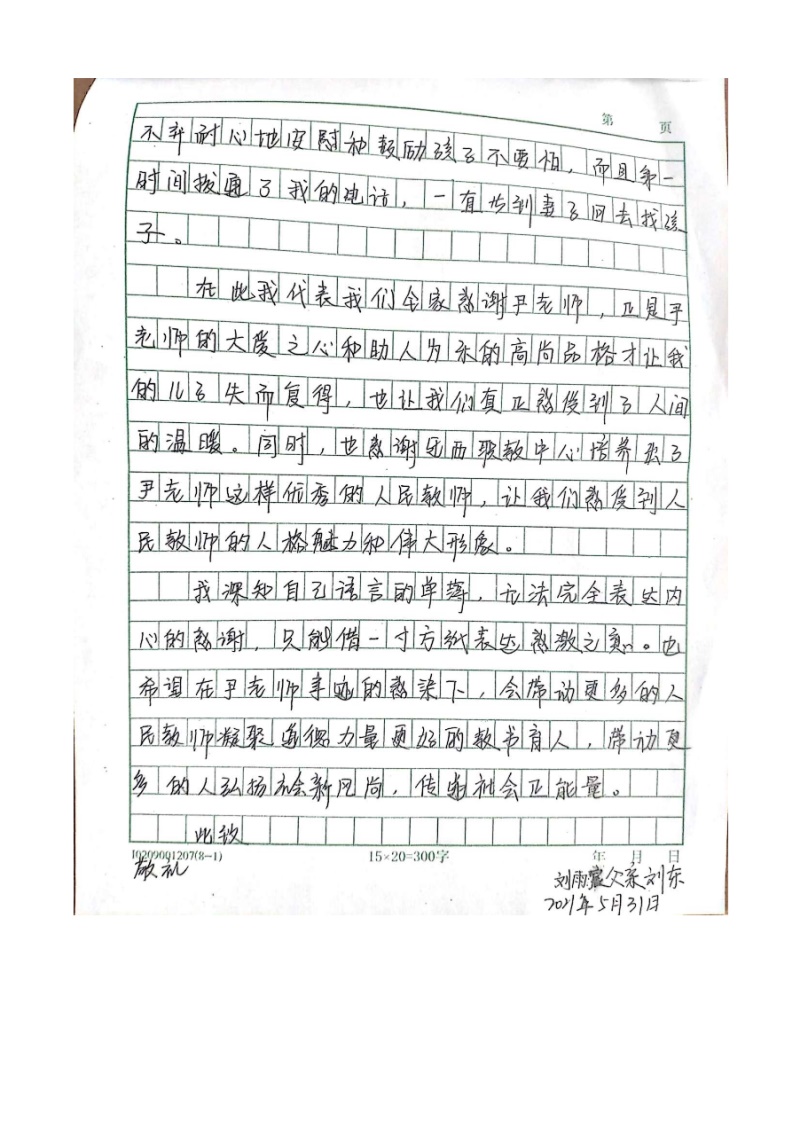 第 页
不弃耐心地安慰和鼓励孩子不要怕，而且第一
时间拨通了我的电话，一直等到妻子回去找孩
子。
在此我代表我们全家感谢尹老师，正是尹
老师的大爱之心和助人为乐的高尚品格才让我
的儿子失而复得，也让我们真正感受到了人间
的温暖。同时，也感谢 西职教中心培养出了
尹老师这样优秀的人民教师，让我们感受到人
民教师的人格魅力和伟大形象。
我深知自己语言的单薄，无法完全表达内
心的感谢，只能借一寸方纸表达感激之意。也
希望在尹老师事迹的感染下，会带动更多的人
民教师凝聚 力量更好的教书育人，带动更
多的人弘扬社会新风尚，传递社会正能量。
此致
10209001207(8-1) 15×20=300字 年 月 日
敬礼
刘雨 父亲刘东
2021年5月31日